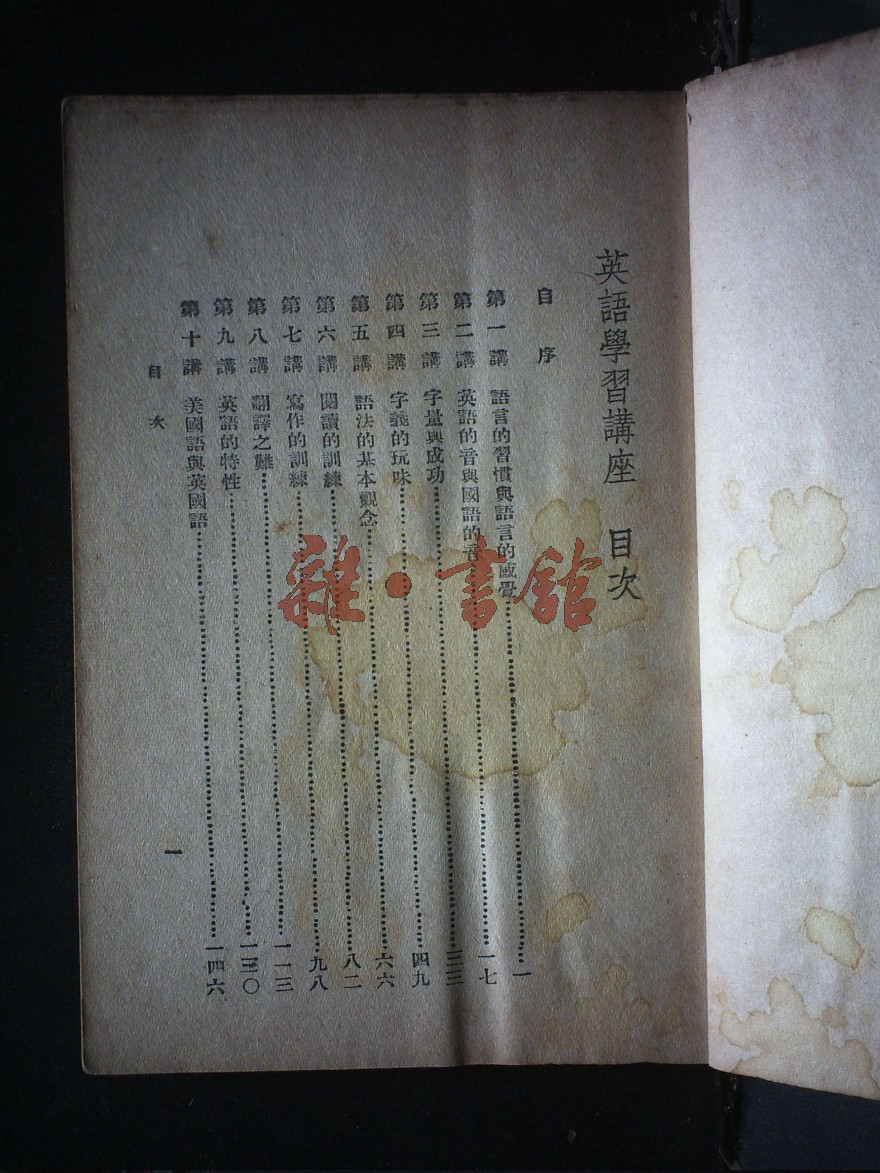 英語學習講座 目次
自序
第一講 語言的習慣與語言的感覺……一
第二講 英語的音與國語的音……一七
第三講 字量與成功……三三
第四講 字義的玩味……四九
第五講 語法的基本觀念……六六
第六講 閱讀的訓練……八二
第七講 寫作的訓練……九八
第八講 翻譯之難……一一三
第九講 英語的特性……一三〇
第十講 美國語與英國語……一四六
目次
一
雜·書館